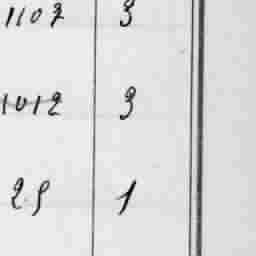 1107 3
1012 3
29 1